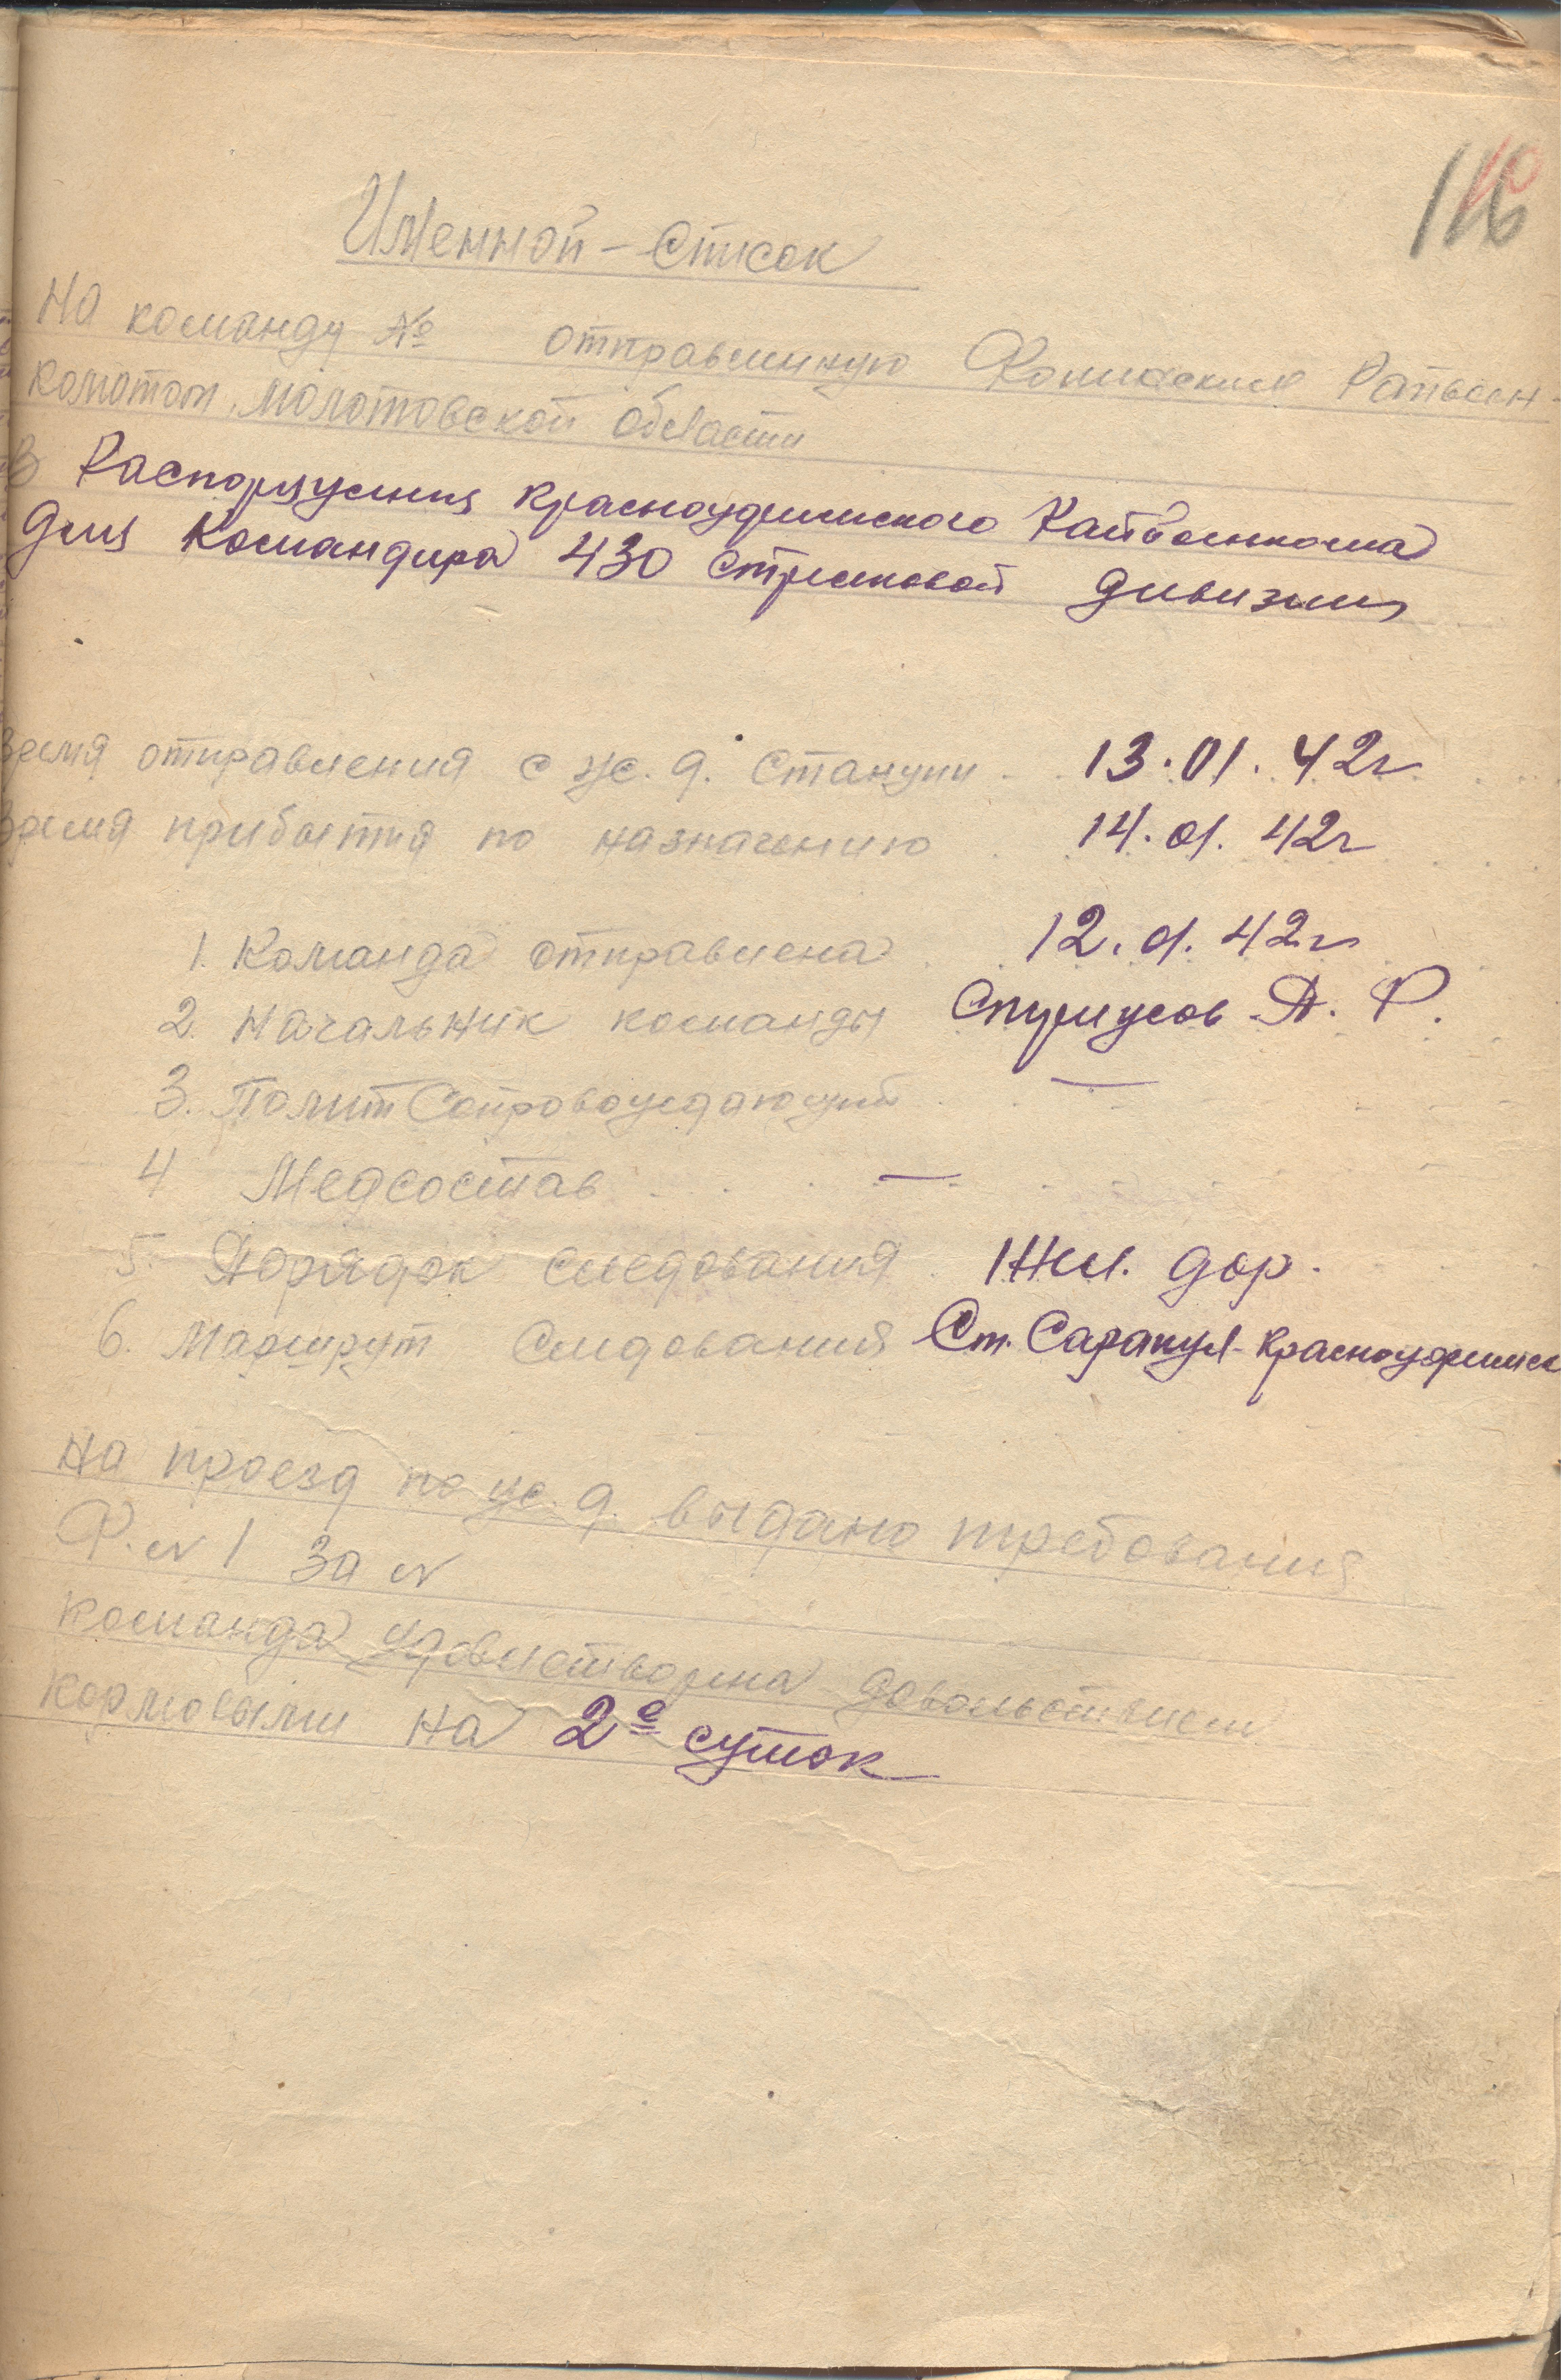 Именной – Список
На команду № отправленную Фокинским Райвоен-
коматом, Молотовской области
В Распоряжения Красноуфимского Райвоенкома
для Командира 430 стрелковой дивизии
Время отправления с ж.д. Станции 13.01.42г
Время прибытия по назначению 14.01.42г
1. Команда отправлена 12.01.42г
2. Начальник команды А. Ф.
3. ПолитСопровождающий —
4 Медсостав —
5. Порядок следования Жел. дор.
6. Маршрут Следования Ст. Сарапул – Красноуфимск
На проезд по ж.д. выдано требования
Ф. № 1 за №
команда удовлетворена довольствием
кормовыми на 2е суток